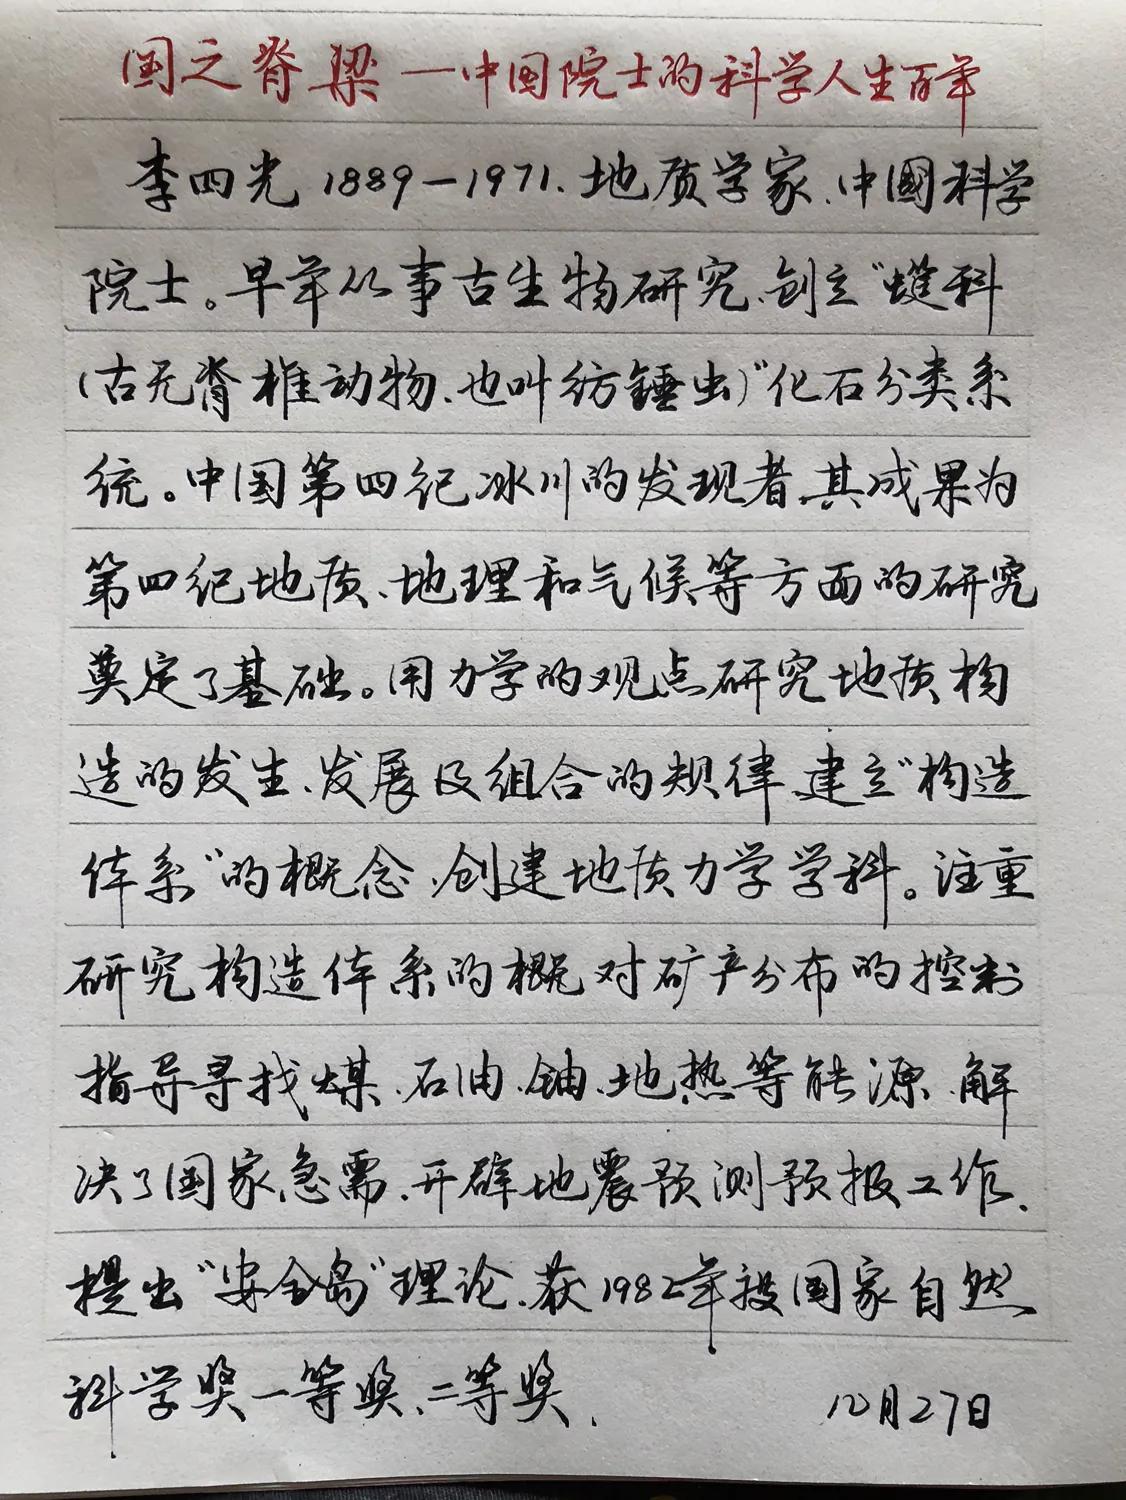 国之脊梁 — 中国院士的科学人生百年
李四光 1889-1971. 地质学家、中國科学
院士。早年从事古生物研究、创立"䗴科
(古无脊椎动物、也叫纺锤虫)"化石分类系
统。中国第四纪冰川的发现者、其成果为
第四纪地质、地理和气候等方面的研究
奠定了基础。用力学的观点研究地质构
造的发生、发展及组合的规律、建立"构造
体系"的概念、创建地质力学学科。注重
研究构造体系的概况对矿产分布的控制
指导寻找煤、石油、铀、地热等能源、解
决了国家急需、开辟地震预测预报工作、
提出"安全岛"理论、获1982年授国家自然
科学奖一等奖、二等奖、 10月27日